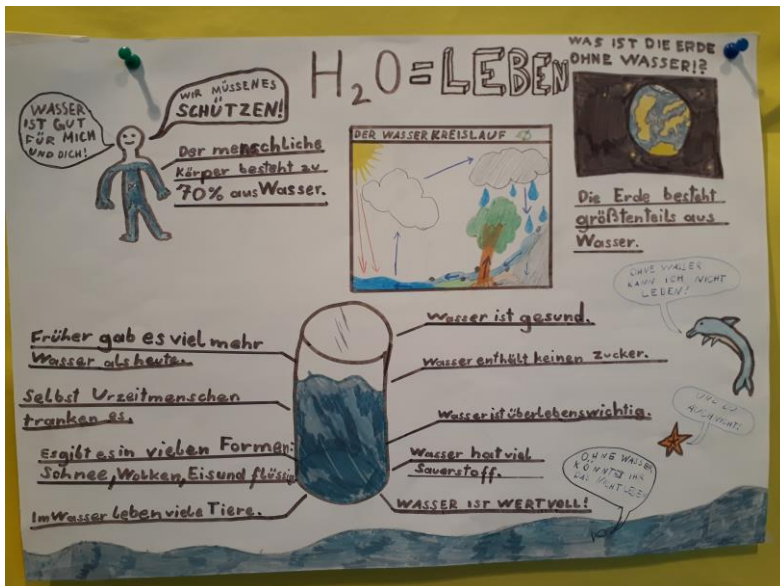 H₂O = LEBEN
WAS IST DIE ERDE
OHNE WASSER!?
WASSER
IST GUT
FÜR MICH
UND DICH!
WIR MÜSSEN ES
SCHÜTZEN!
Der menschliche
Körper besteht zu
70% aus Wasser.
DER WASSERKREISLAUF
Die Erde besteht
größtenteils aus
Wasser.
OHNE WASSER
KANN ICH NICHT
LEBEN!
Früher gab es viel mehr
Wasser als heute.
Selbst Urzeitmenschen
tranken es.
Es gibt es in vielen Formen:
Schnee, Wolken, Eis und flüssig
Im Wasser leben viele Tiere.
Wasser ist gesund.
Wasser enthält keinen zucker.
Wasser ist überlebenswichtig.
Wasser hat viel
Sauerstoff.
WASSER IST WERTVOLL!
UND DU
AUCH NICHT!
OHNE WASSER
KÖNNTET IHR
DAS NICHT